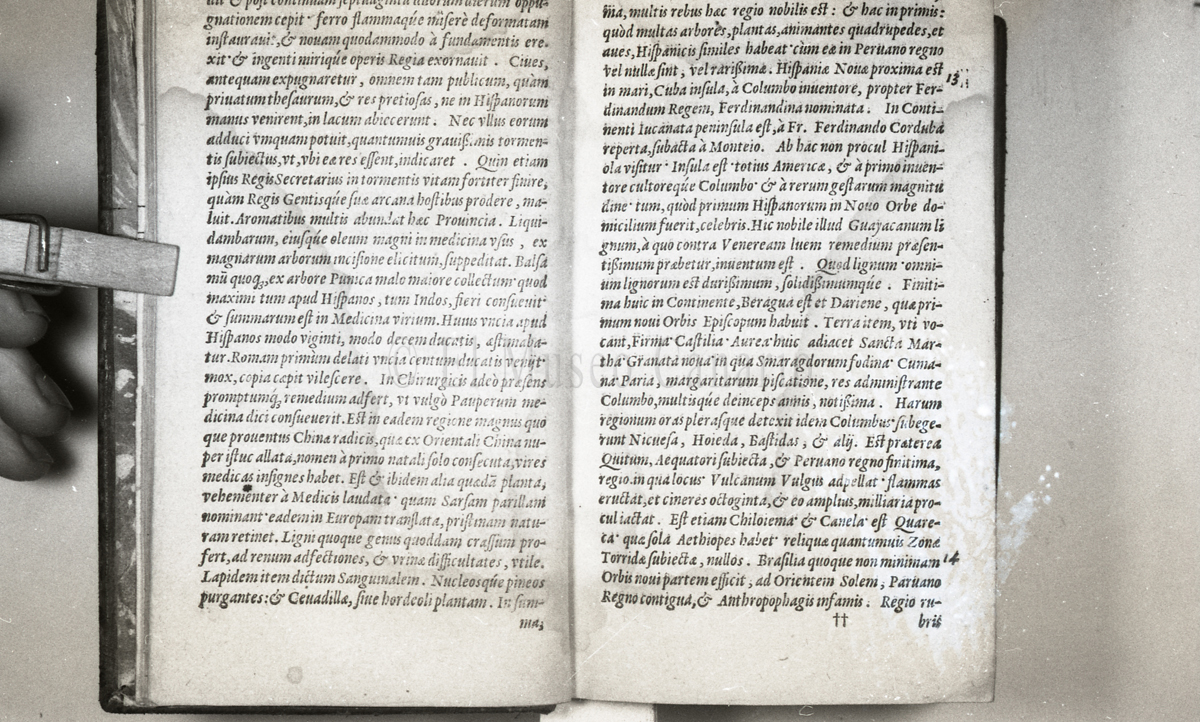 gnationem cepit· ferro flammaq́ue miserè deformatam
instaurauit,& nouam quodammodo à fundamentis ere-
xit· & ingenti mirique operis Regia exornauit . Ciues,
antequam expugnaretur , omnem tam publicum, quàm
priuatum thesaurum,& res pretiosas, ne in Hispanorum
manus venirent,in lacum abiccerunt . Nec vllus eorum
adduci vmquam potuit,quantumuis grauiß.mis tormen-
tis subiectus,vt,vbi eæ res essent,indicaret . Quin etiam
ipsius Regis Secretarius in tormentis vitam fortiter finire,
quàm Regis Gentisq́ue suæ arcana hostibus prodere , ma-
luit.Aromatibus multis abundat hæc Prouincia . Liqui-
dambarum, eiusq́ue oleum magni in medicina vsus , ex
magnarum arborum incisione elicitum,suppeditat. Balsa
mū quoq,ex arbore Punica malo maiore collectum· quod
maximi tum apud Hispanos , tum Indos, fieri consueuit·
& summarum est in Medicina virium.Huius vncia apud
Hispanos modo viginti, modo decem ducatis , æstimaba-
tur.Romam primùm delati vncia centum ducatis venijt·
mox, copia capit vilescere . In Chirurgicis adeò præsens
promptumq, remedium adfert, vt vulgò Pauperum me-
dicina dici consueuerit.Est in eadem regione magnus quo
que prouentus Chinæ radicis,quæ ex Orientali China nu-
per istuc allata,nomen à primo natali solo consecuta,vires
medicas insignes habet. Est & ibidem alia quædā planta,
vehementer à Medicis laudata· quam Sarsam parillam
nominant· eadem in Europam translata, pristinam natu-
ram retinet. Ligni quoque genus quoddam crassum pro-
fert,ad renum adfectiones, & vrinæ difficultates , vtile.
Lapidem item dictum Sanguinalem . Nucleosq́ue pineos
purgantes:& Ceuadillæ, siue hordeoli plantam . In sum-
ma,
ma, multis rebus hæc regio nobilis est : & hac in primis:
quòd multas arbores,plantas,animantes quadrupedes,et
aues,Hispanicis similes habeat· cùm eæ in Peruano regno
vel nullæ sint , vel rarißimæ. Hispaniæ Nouæ proxima est
13
in mari, Cuba insula, à Columbo inuentore, propter Fer-
dinandum Regem, Ferdinandina nominata . In Conti-
nenti Iucanata peninsula est,à Fr. Ferdinando Corduba
reperta,subacta à Monteio. Ab hac non procul Hispani-
ola visitur· Insula est· totius Americæ, & à primo inuen-
tore cultoreq́ue Columbo· & à rerum gestarum magnitu
dine· tum, quòd primum Hispanorum in Nouo Orbe do-
micilium fuerit,celebris.Hic nobile illud Guayacanum li
gnum,à quo contra Veneream luem remedium præsen-
tißimum præbetur,inuentum est . Quod lignum· omni-
um lignorum est durißimum , solidißimumq́ue . Finiti-
ma huic in Continente, Beragua est et Dariene , quæ pri-
mum noui Orbis Episcopum habuit . Terra item, vti vo-
cant,Firma· Castilia· Aurea· huic adiacet Sancta Mar-
tha· Granata noua· in qua Smaragdorum fodina· Cuma-
na· Paria, margaritarum piscatione, res administrante
Columbo,multisq́ue deinceps annis, notißima . Harum
regionum oras plerasque detexit idem Columbus· subege-
runt Nicuesa, Hoieda, Bastidas, & alij. Est præterea
Quitum, Aequatori subiecta , & Peruano regno finitima,
regio.in qua locus· Vulcanum Vulgus adpellat· flammas
eructat,et cineres octoginta,& eo amplius,milliaria pro-
cul iactat . Est etiam Chiloiema· & Canela· est Quare-
ca· quæ sola Aethiopes habet· reliquæ quantumuis Zonæ
Torridæ subiectæ, nullos . Brasilia quoque non minimam
14
Orbis noui partem efficit , ad Orientem Solem , Paruano
Regno contigua,& Anthropophagis infamis . Regio ru-
†† bris